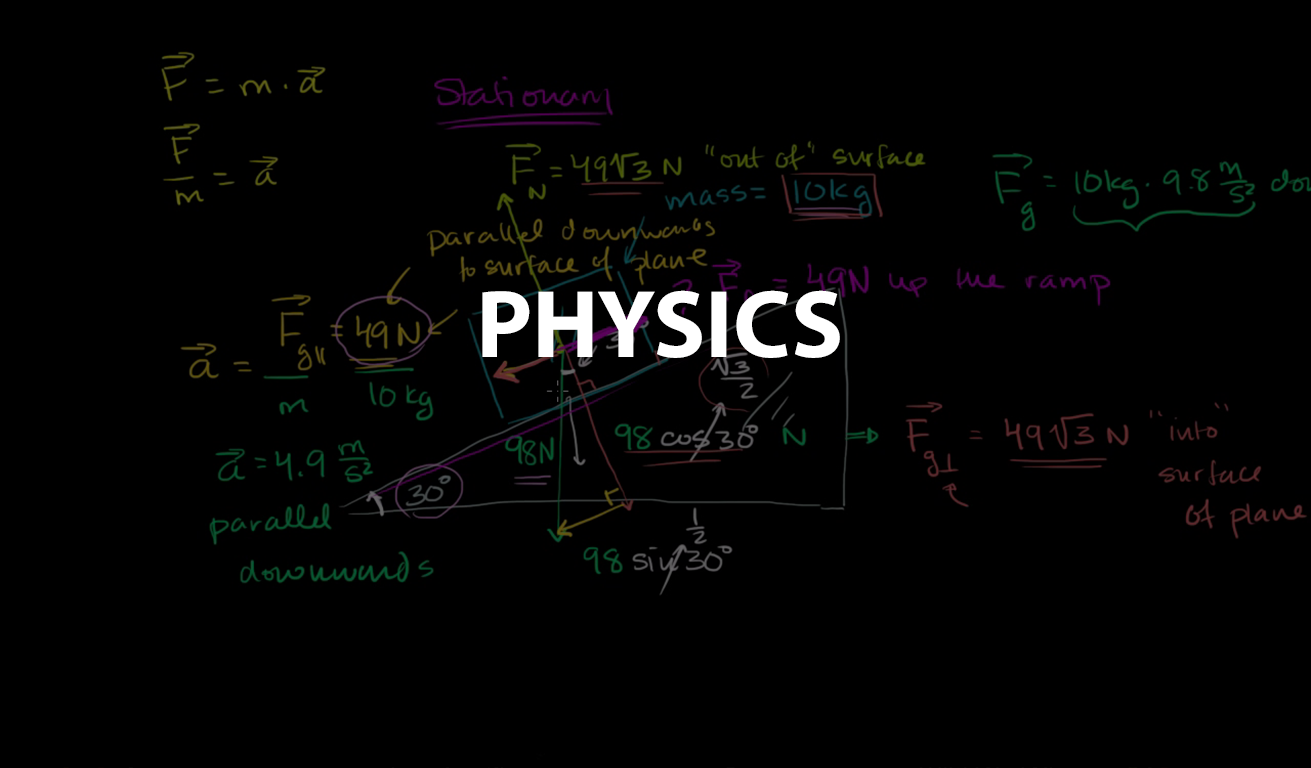 F = m · a
Stationary
F/m = a
F_N = 49√3 N "out of" surface
mass = 10kg
F_g = 10kg · 9.8 m/s² dow
parallel downwards
to surface of plane
= 49N up the ramp
PHYSICS
F_g|| = 49 N
a = m 10 kg
√3/2
98N
98 cos 30° N ⇒ F_g⊥ = 49√3 N "into"
surface
of plane
a = 4.9 m/s²
30°
parallel
downwards
1/2
98 sin 30°